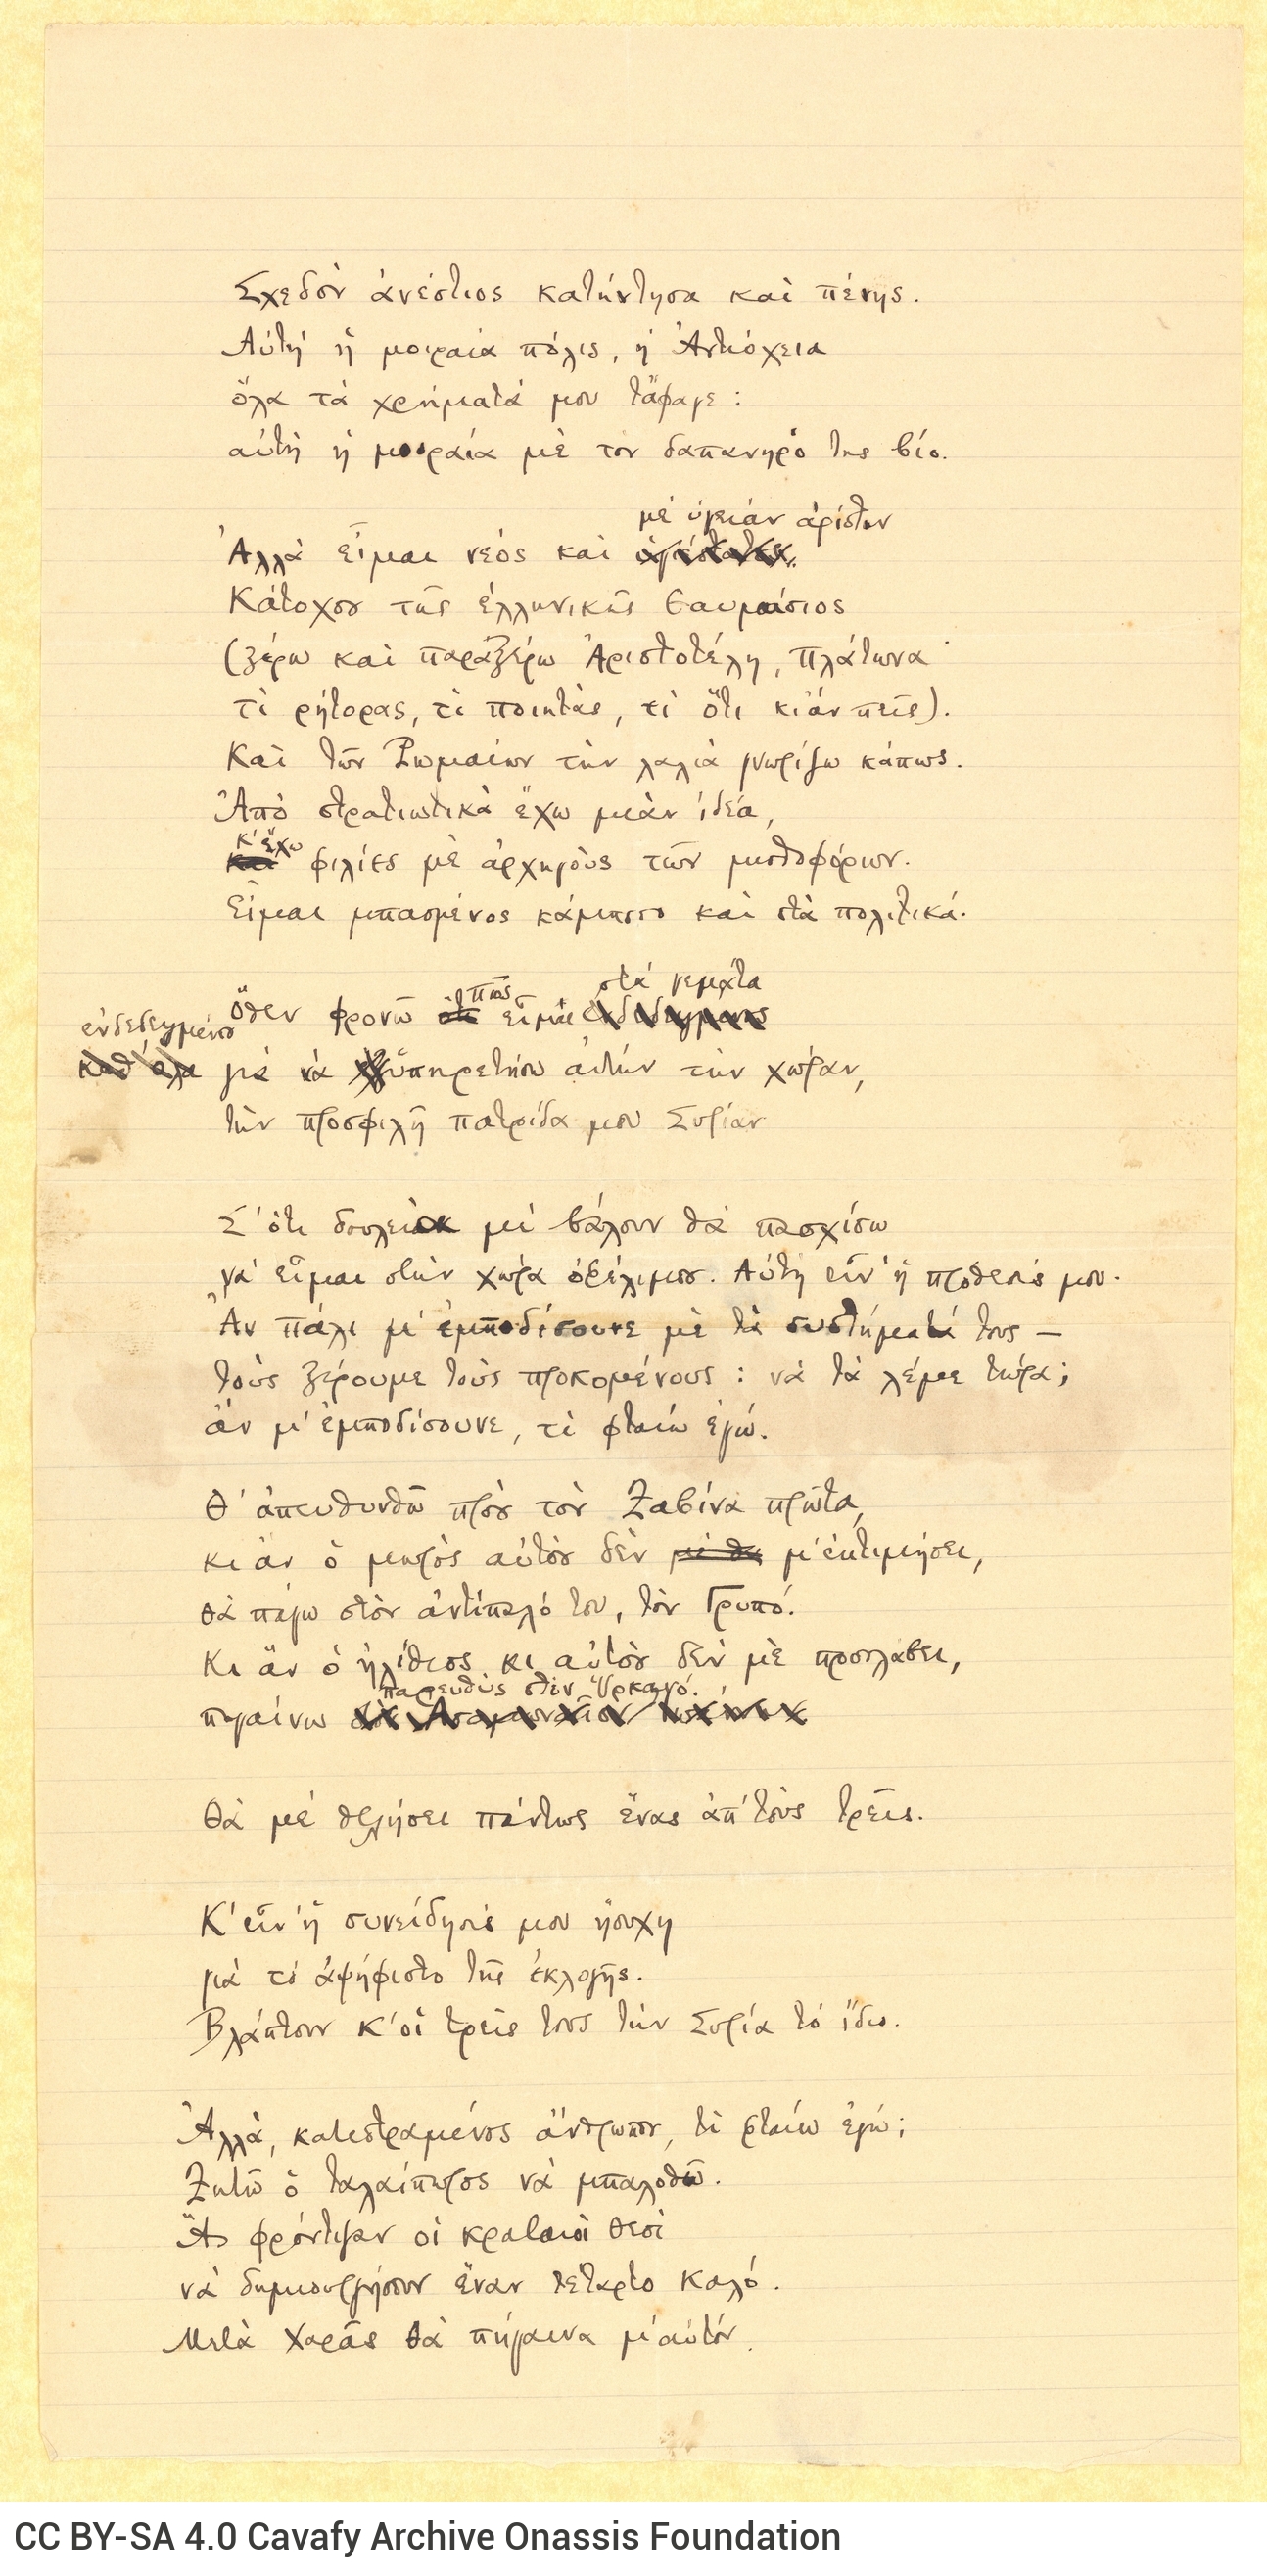 Σχεδὸν ἀνέστιος κατήντησα καὶ πένης.
Αὐτὴ ἡ μοιραία πόλις, ἡ Ἀντιόχεια
ὅλα τὰ χρήματά μου τἄφαγε:
αὐτὴ ἡ μοιραία μὲ τὸν δαπανηρό της βίο.
μὲ ὑγείαν ἀρίστην
Ἀλλὰ εἶμαι νέος καὶ
Κάτοχος τῆς ἑλληνικῆς θαυμάσιος
(ξέρω καὶ παραξέρω Ἀριστοτέλη, Πλάτωνα
τί ρήτορας, τί ποιητάς, τί ὅτι κι ἂν πεῖς).
Καὶ τῶν Ρωμαίων τὴν λαλιὰ γνωρίζω κάπως.
Ἀπὸ στρατιωτικὰ ἔχω μιὰν ἰδέα,
κ' ἔχω
και φιλίες μὲ ἀρχηγοὺς τῶν μισθοφόρων.
Εἶμαι μπασμένος κάμποσο καὶ στὰ πολιτικά.
πῶς στὰ γεμᾶτα
Ὅθεν φρονῶ ὅτι εἶμαι ἐνδεδειγμένος
ἐνδεδειγμένος
καθ' ὅλα γιὰ νὰ ὑπηρετήσω αὐτὴν τὴν χώραν,
τὴν προσφιλῆ πατρίδα μου Συρίαν
Σ' ὅτι δουλειὰ μὲ βάλουν θὰ πασχίσω
νὰ εἶμαι στὴν χώρα ὠφέλιμος. Αὐτὴ εἶν' ἡ πρόθεσίς μου.
Ἂν πάλι μ' ἐμποδίσουνε μὲ τὰ συστήματά τους —
τοὺς ξέρουμε τοὺς προκομένους: νὰ τὰ λέμε τώρα;
ἂν μ' ἐμποδίσουνε, τί φταίω ἐγώ.
Θ' ἀπευθυνθῶ πρὸς τὸν Ζαβίνα πρῶτα,
κι ἂν ὁ μωρὸς αὐτὸς δὲν μὲ θα μ' ἐκτιμήσει,
θὰ πάγω στὸν ἀντίπαλό του, τὸν Γρυπό.
Κι ἂν ὁ ἠλίθιος κι αὐτὸς δὲν μὲ προσλάβει,
παρευθὺς στὸν Ὑρκανό.
πηγαίνω
Θὰ μὲ θελήσει πάντως ἕνας ἀπ' τοὺς τρεῖς.
Κ' εἶν' ἡ συνείδησίς μου ἥσυχη
γιὰ τὸ ἀψήφιστο τῆς ἐκλογῆς.
Βλάπτουν κ' οἱ τρεῖς τους τὴν Συρία τὸ ἴδιο.
Ἀλλά, κατεστραμένος ἄνθρωπος, τί φταίω ἐγώ;
Ζητῶ ὁ ταλαίπωρος νὰ μπαλοθῶ.
Ἂς φρόντιζαν οἱ κραταιοὶ θεοὶ
νὰ δημιουργήσουν ἕναν τέταρτο καλό.
Μετὰ χαρᾶς θὰ πήγαινα μ' αὐτόν.
CC BY-SA 4.0 Cavafy Archive Onassis Foundation